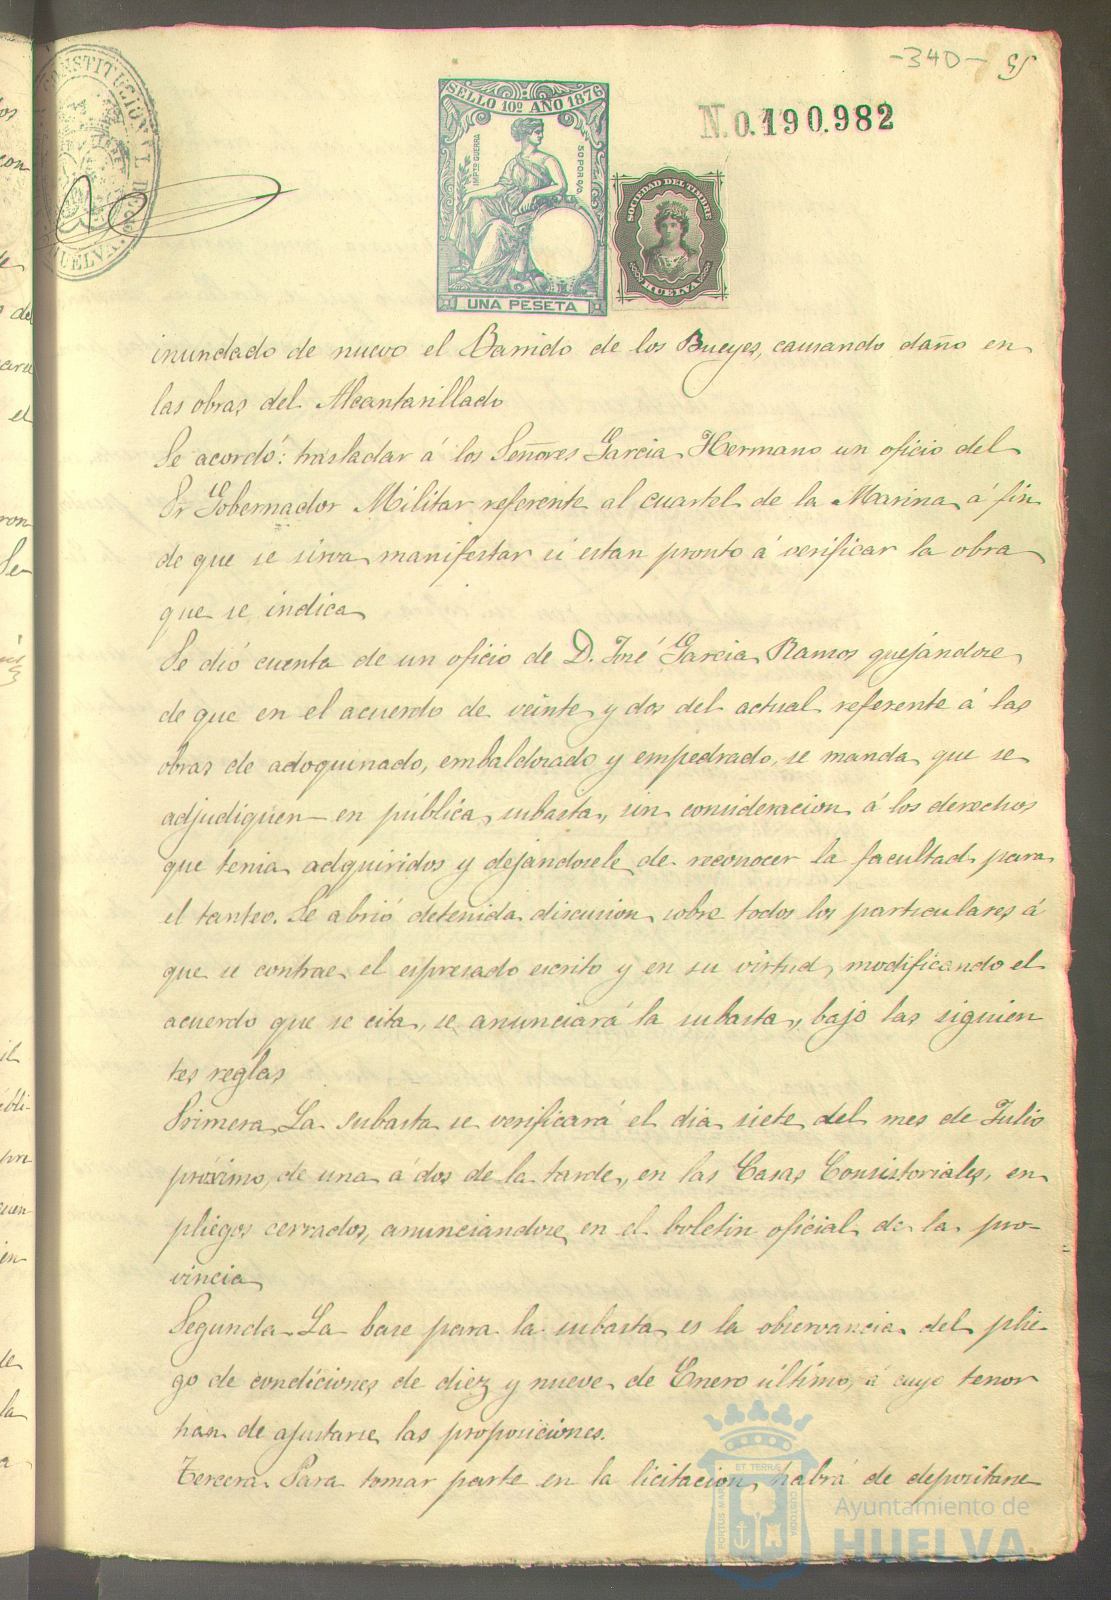 -340- 95
CONSTITUCIONAL DE HUELVA
SELLO 10º AÑO 1876
IMPTO GUERRA
50 POR %
UNA PESETA
N.0.190.982
SOCIEDAD DEL TIMBRE
HUELVA
inundado de nuevo el Barrido de los Bueyes, causando daño en
las obras del Alcantarillado
Se acordó: trasladar á los Señores Garcia Hermano un oficio del
Sr Gobernador Militar referente al cuartel de la Marina á fin
de que se sirva manifestar si estan pronto á verificar la obra
que se indica
Se dió cuenta de un oficio de D. José Garcia Ramos quejándose
de que en el acuerdo de veinte y dos del actual referente á las
obras de adoquinado, embaldosado y empedrado, se manda que se
adjudiquen en pública subasta, sin consideracion á los derechos
que tenia adquiridos y dejándosele de reconocer la facultad para
el tanteo. Se abrió detenida discusion sobre todos los particulares á
que se contrae el espresado escrito y en su virtud, modificando el
acuerdo que se cita, se anunciará la subasta, bajo las siguien
tes reglas
Primera La subasta se verificará el dia siete del mes de Julio
próximo, de una á dos de la tarde, en las Casas Consistoriales, en
pliegos cerrados, anunciandose en el boletin oficial de la pro-
vincia
Segunda La base para la subasta es la observancia del plie-
go de condiciones de diez y nueve de Enero último, á cuyo tenor
han de ajustarse las proposiciones.
Tercera Para tomar parte en la licitacion habrá de depositarse
PORTUS MARIS ET TERRAE CUSTODIA
Ayuntamiento de
HUELVA